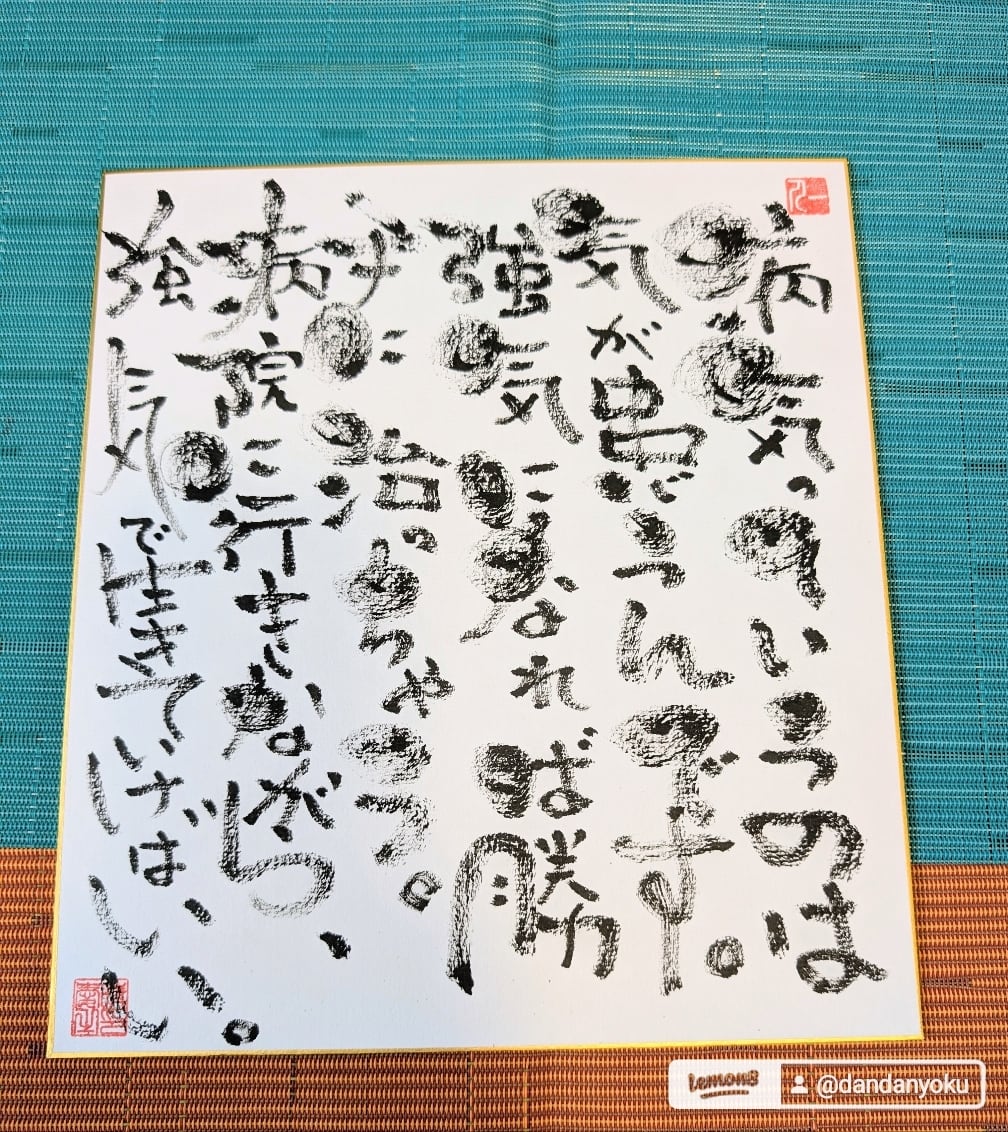 病気っていうのは
気が患うんです。
強気になれば勝
手に治っちゃう。
病院に行きながら、
強気で生きていけばいい。
Lemon8 @dandanyoku